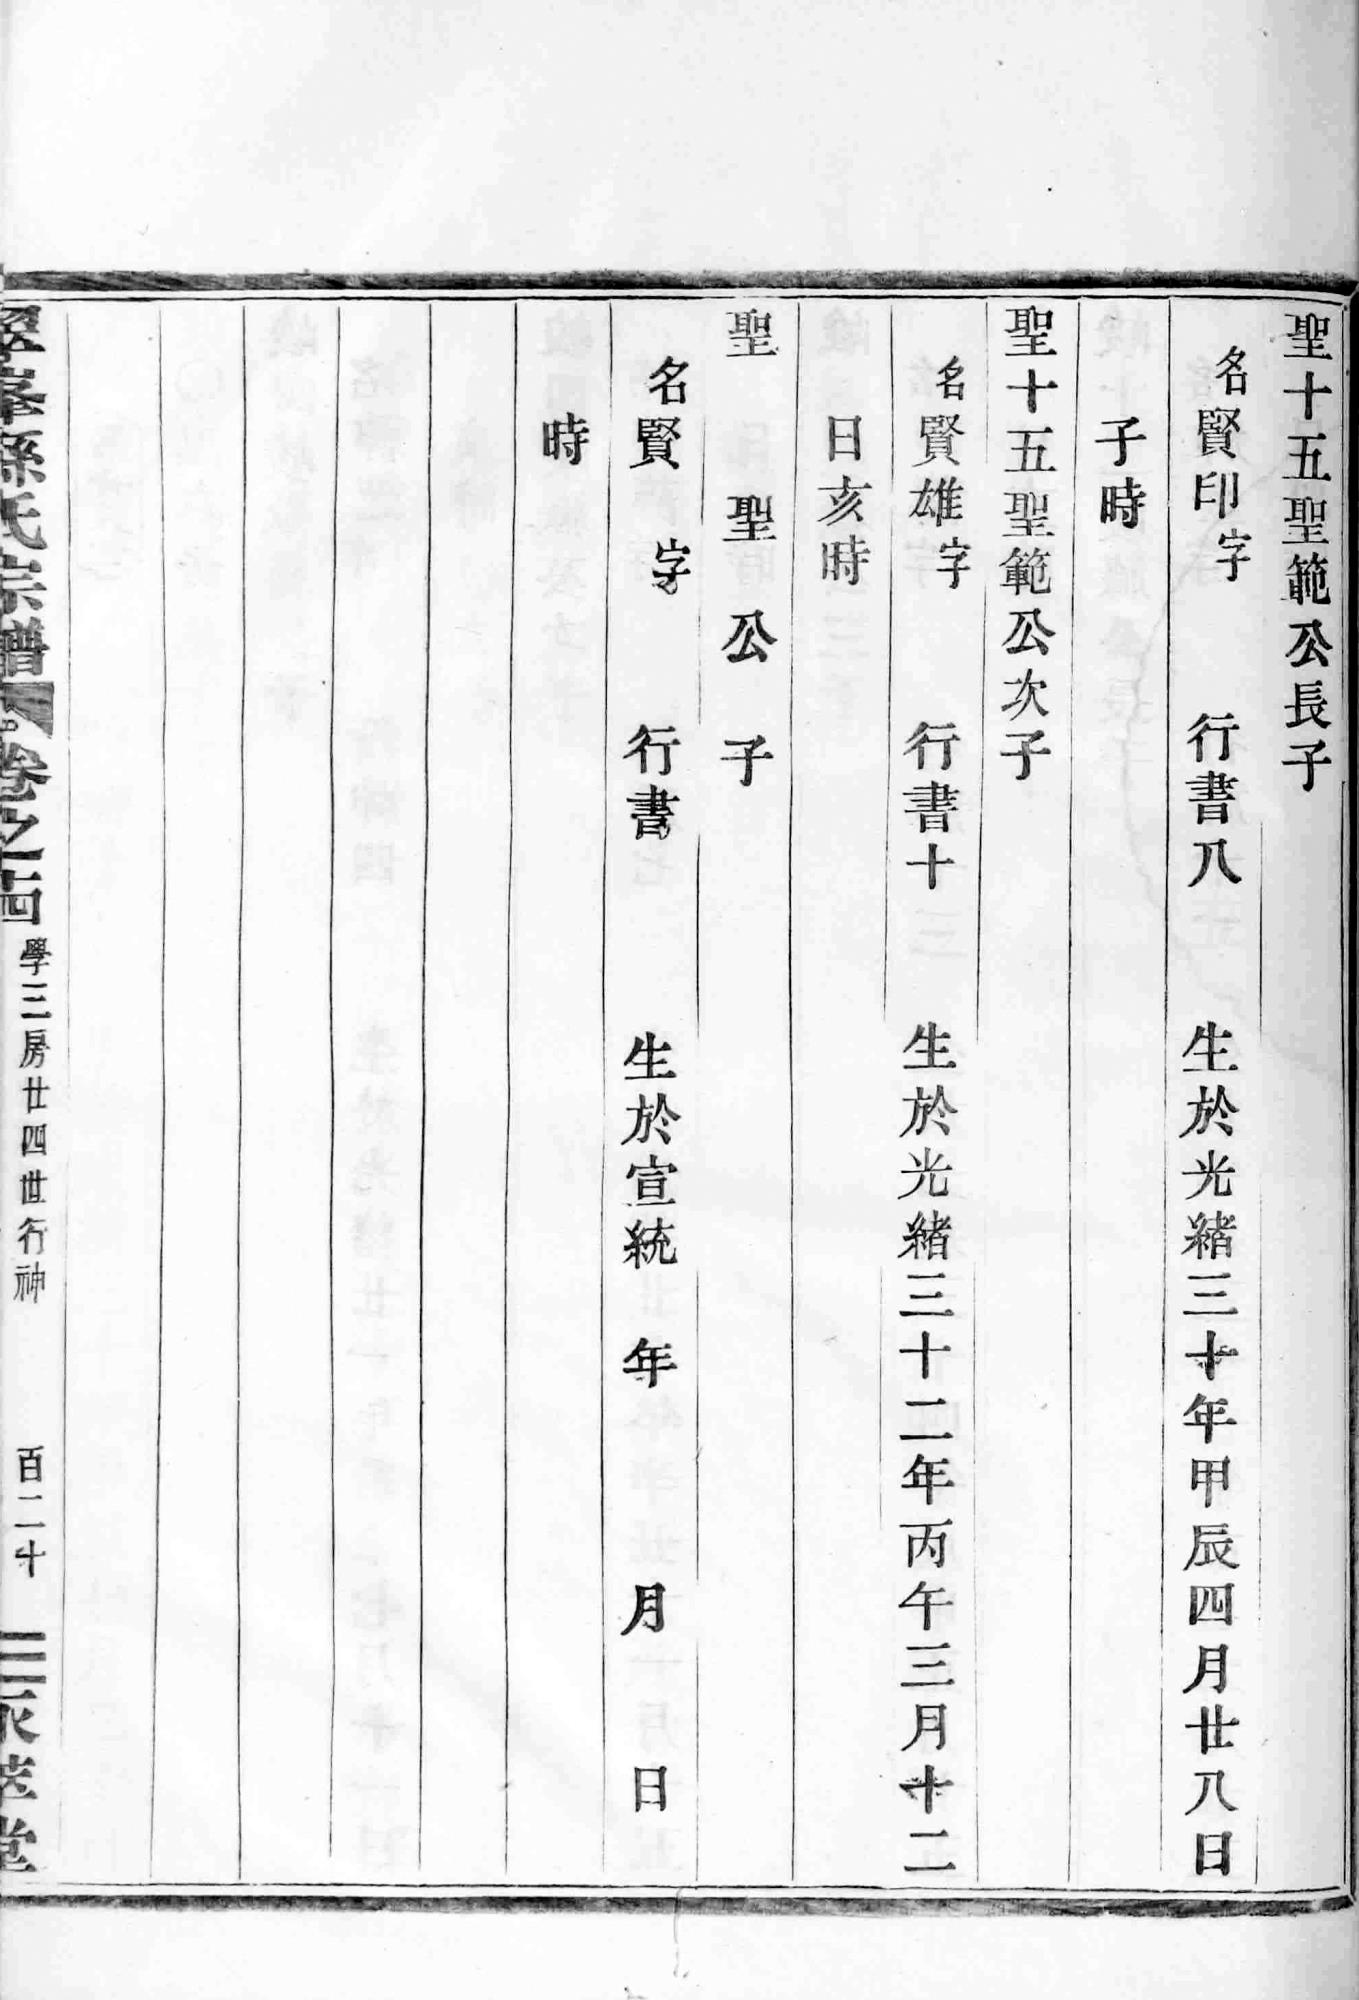 聖十五聖範公長子
名賢印字 行書八 生於光緒三十年甲辰四月廿八日
子時
聖十五聖範公次子
名賢雄字 行書十 生於光緒三十二年丙午三月十二
日亥時
聖 聖 公 子
名賢 字 行書 生於宣統 年 月 日
時
翠峯孫氏宗譜 卷之十四 學三房廿四世行神 百二十 永萃堂